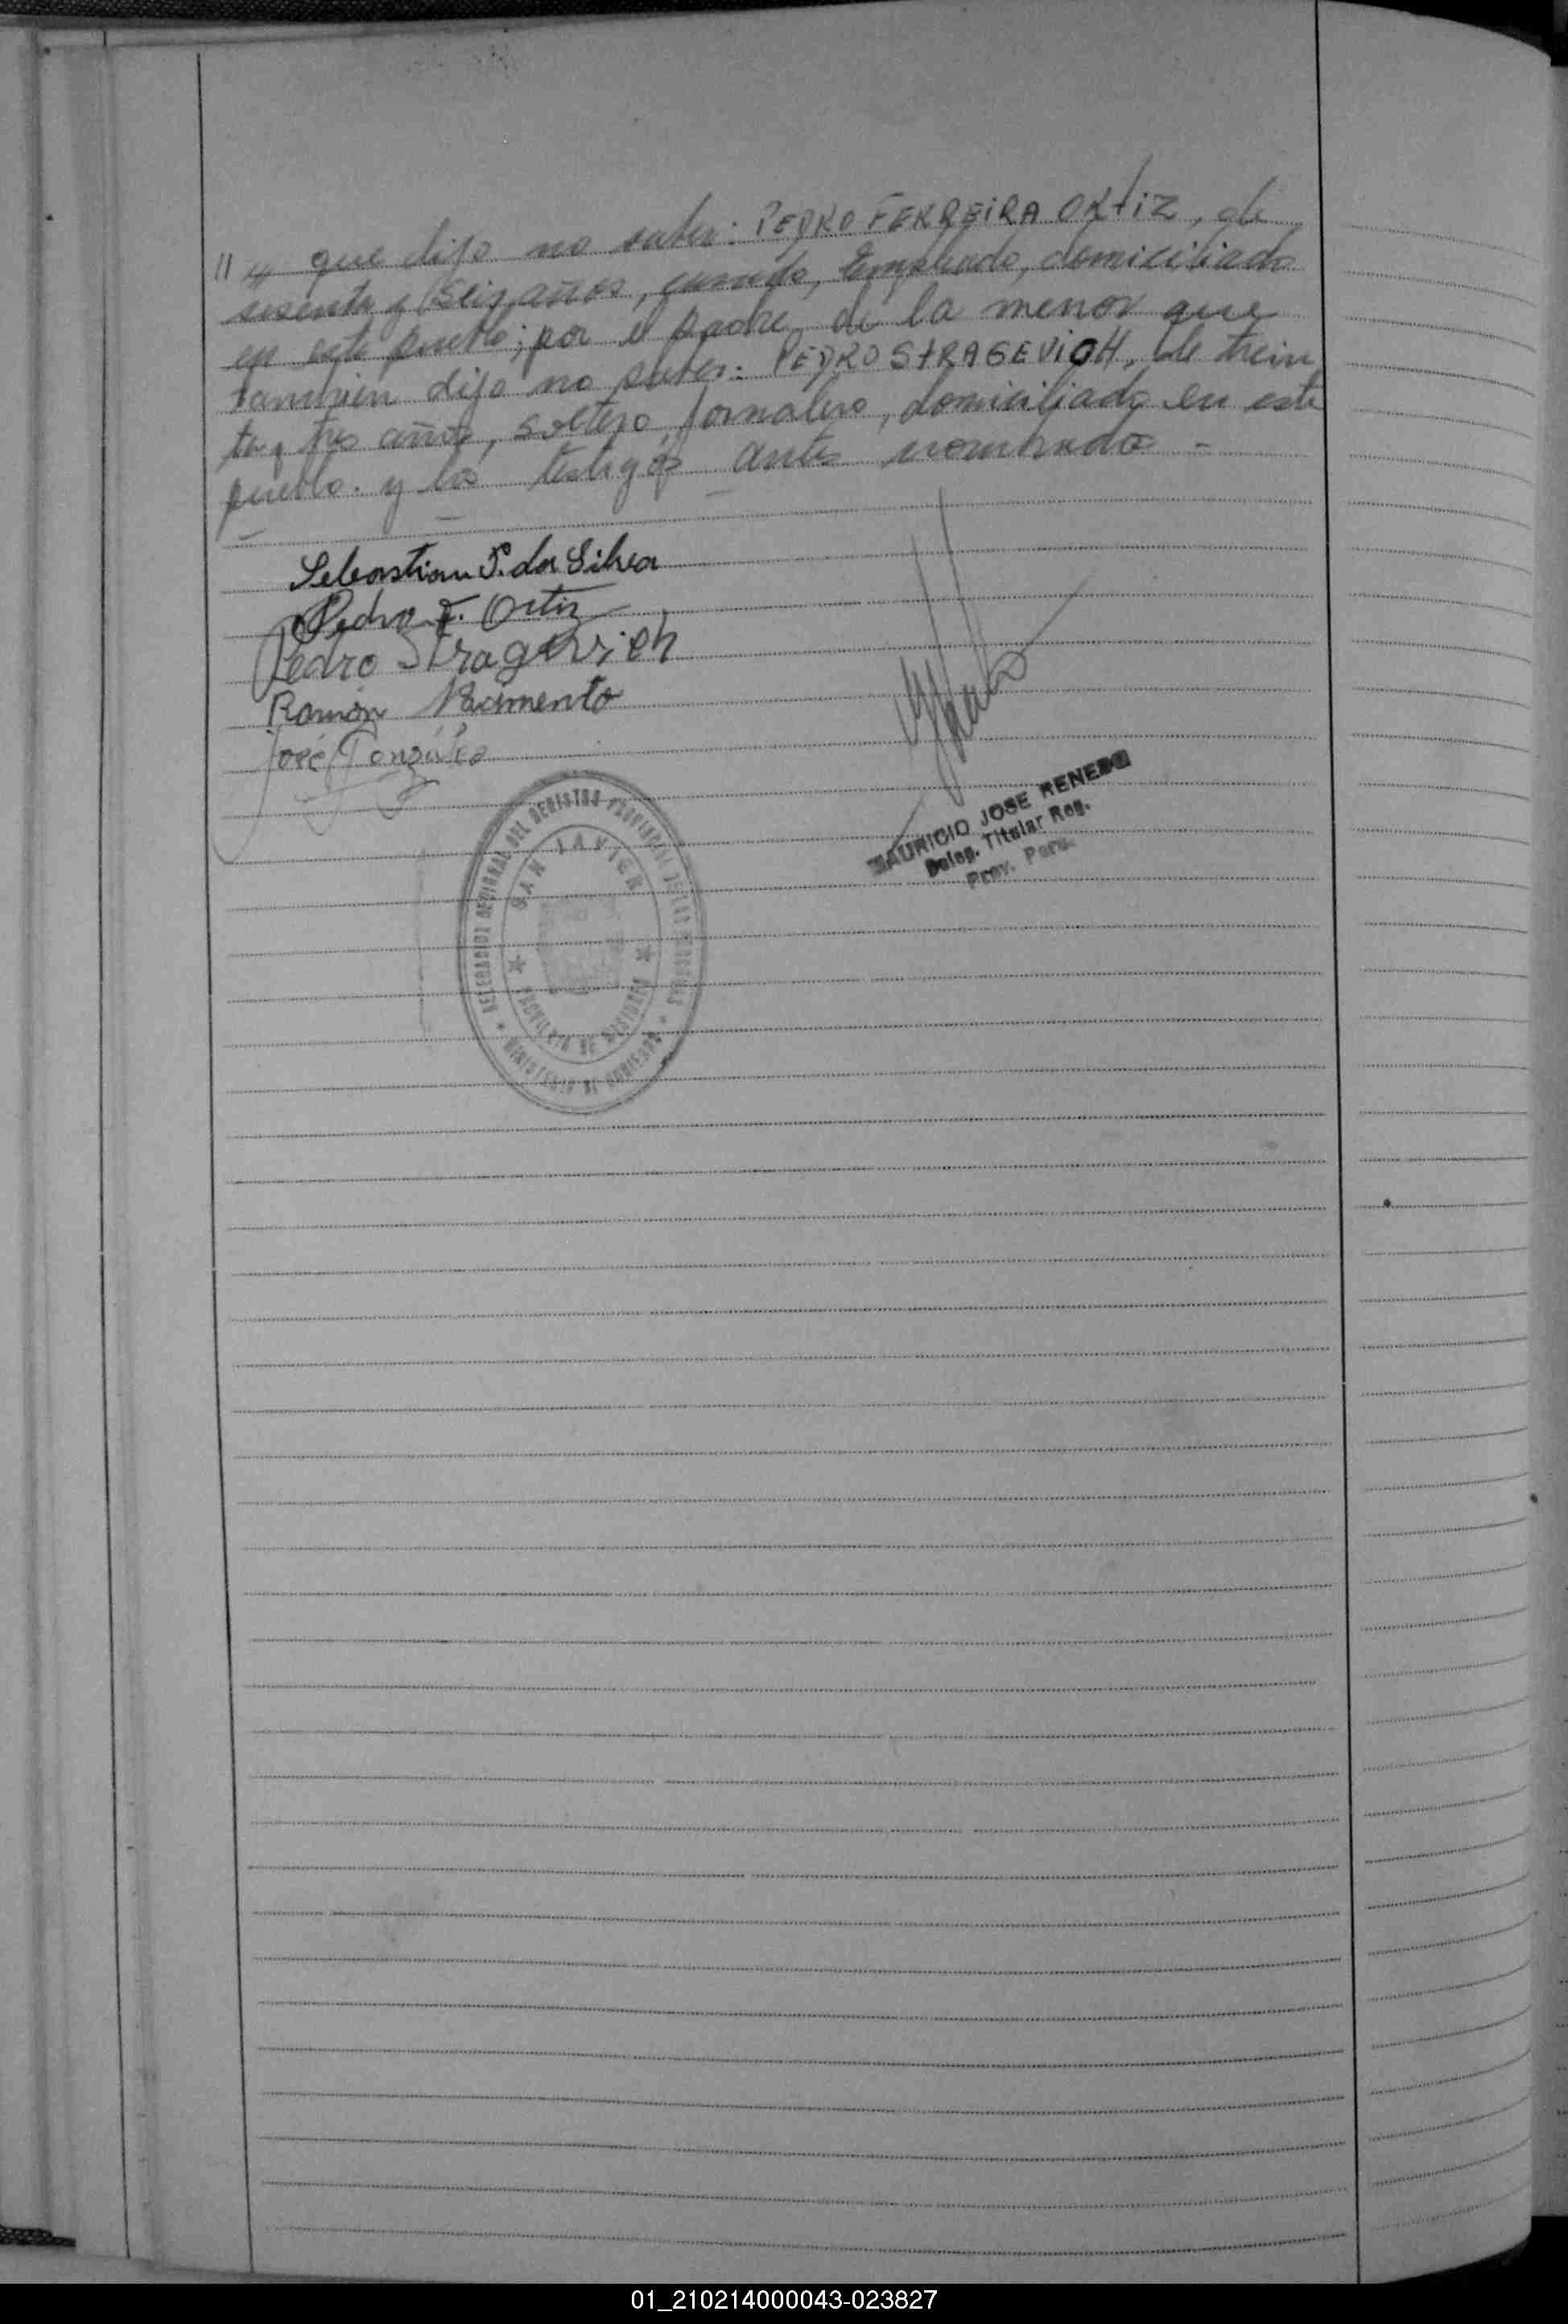 que dijo no saber: PEDRO FERREIRA ORTIZ, de
sesenta y seis años, casado, Empleado, domiciliado
en este pueblo; por el padre de la menor que
tambien dijo no saber: PEDRO STRAGEVICH, de trein
ta y tres años, soltero, Jornalero, domiciliado en este
pueblo. y los testigos antes nombrados -
Sebastian P. da Silva
Pedro F. Ortiz
Pedro Stragevich
Ramón Nacimento
José González
MAURICIO JOSE RENEDO
Deleg. Titular Reg.
Prov. Pers.
DEL REGISTRO PROVINCIAL DE LAS PERSONAS
SAN JAVIER
PROVINCIA DE MISIONES
MINISTERIO DE GOBIERNO
01_210214000043-023827